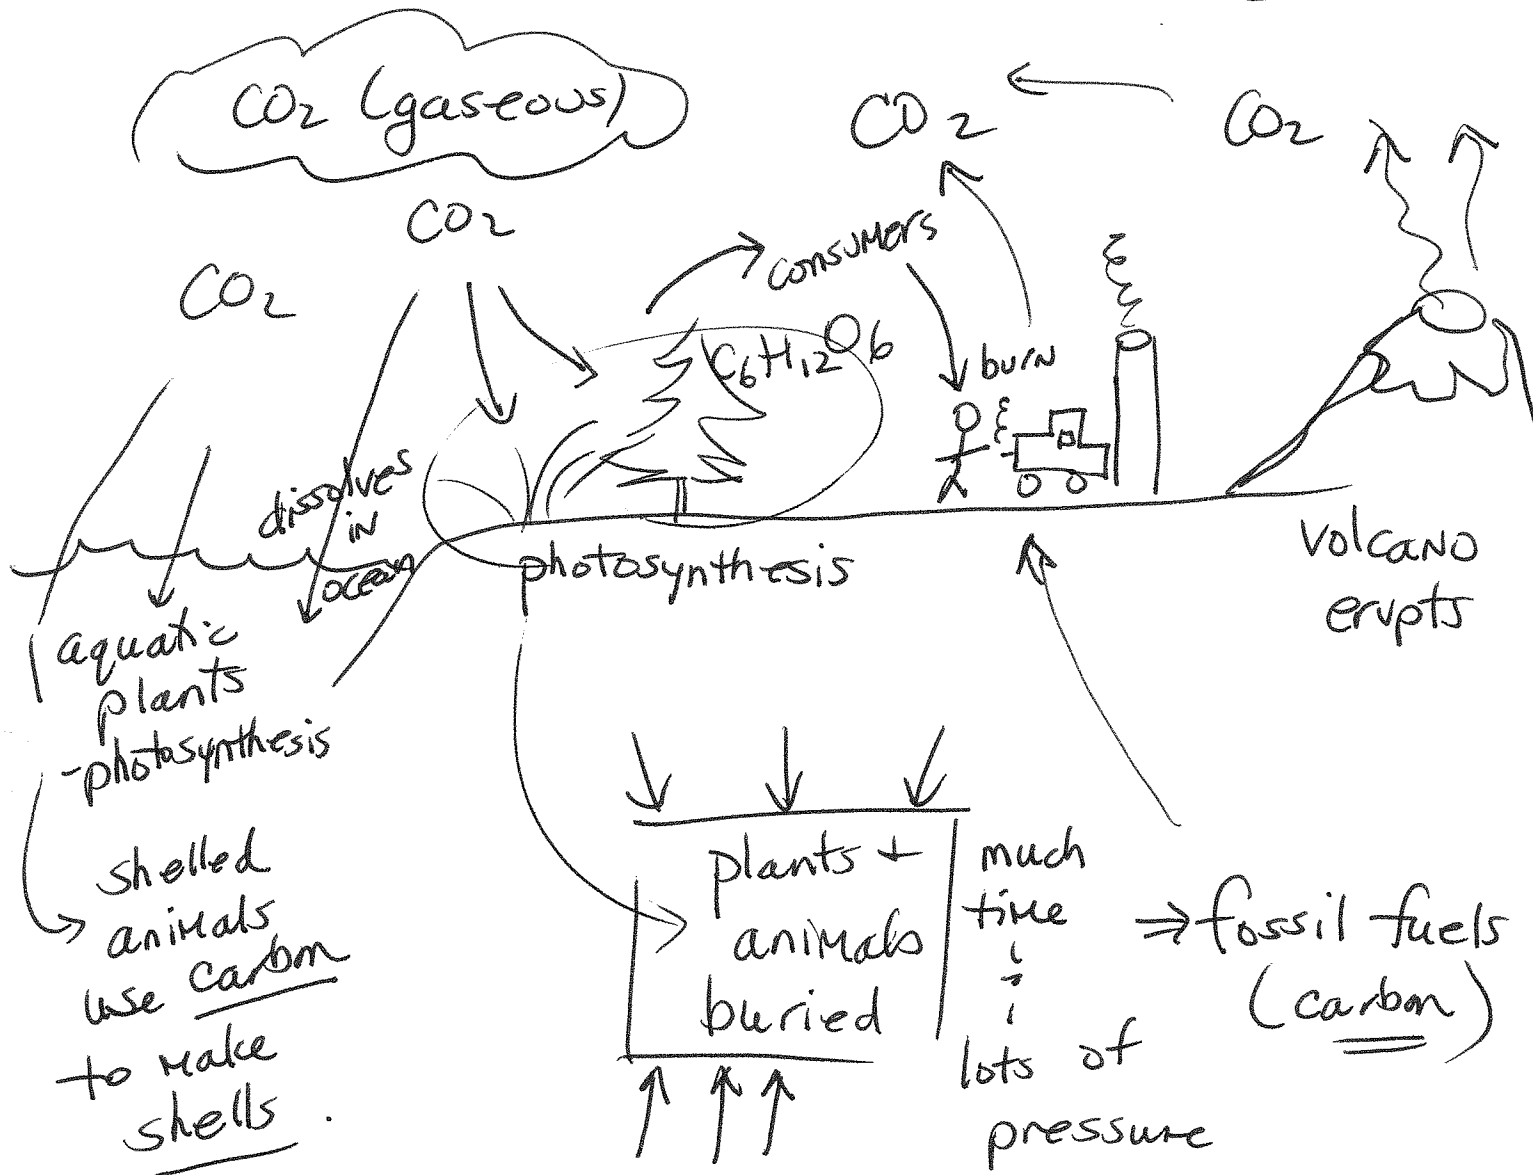 CO2 (gaseous)
CO2
CO2
CO2
CO2
consumers
C6H12O6
burn
dissolves
in
ocean
photosynthesis
volcano
erupts
aquatic
plants
-photosynthesis
shelled
animals
use carbon
to make
shells.
plants +
animals
buried
much
time
+
lots of
pressure
⇒ fossil fuels
(carbon)